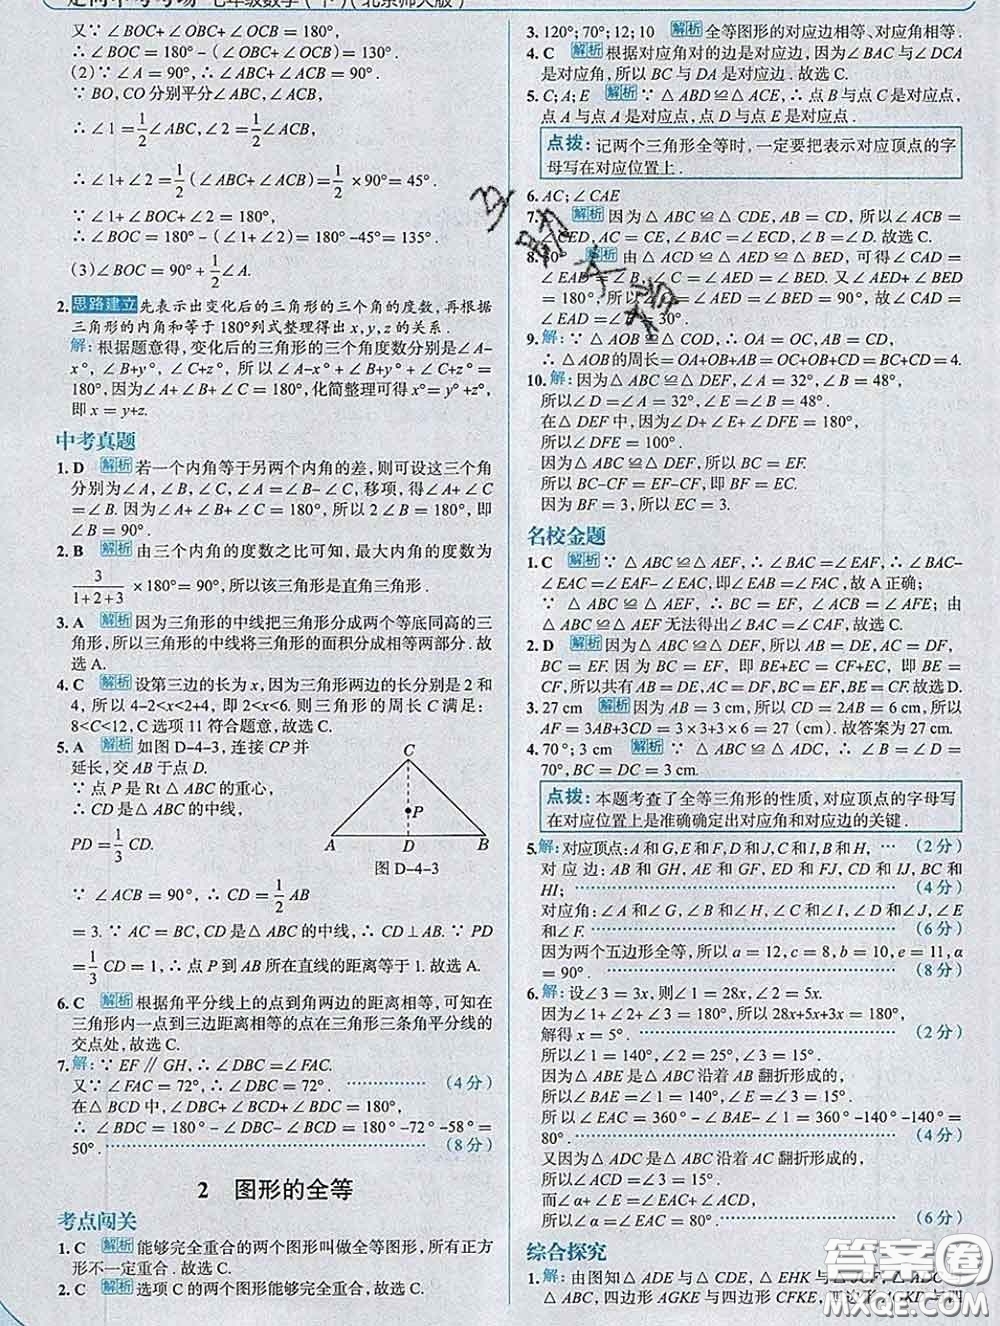 走向中考考场 七年级数学(下)(北京师大版)
又∵∠BOC+∠OBC+∠OCB = 180°,
∴∠BOC = 180° -(∠OBC+∠OCB) = 130°.
(2)∵∠A = 90°,∴∠ABC+∠ACB = 90°.
∵BO,CO分别平分∠ABC,∠ACB,
∴∠1 = 1/2∠ABC,∠2 = 1/2∠ACB,
∴∠1+∠2 = 1/2(∠ABC+∠ACB) = 1/2 ×90° = 45°.
∵∠1+∠2+∠BOC = 180°,
∴∠BOC = 180° -(∠1+∠2) = 180° -45° = 135°.
(3)∠BOC = 90° + 1/2∠A.
2. 思路建立 先表示出变化后的三角形的三个角的度数,再根据
三角形的内角和等于180°列式整理得出x,y,z的关系.
解:根据题意得,变化后的三角形的三个角度数分别是∠A-
x°,∠B+y°,∠C+z°,所以∠A-x°+∠B+y°+∠C+z° =
180°,因为∠A+∠B+∠C = 180°,化简整理可得x° = y°+z°,
即x = y+z.
中考真题
1. D 解析 若一个内角等于另两个内角的差,则可设这三个角
分别为∠A,∠B,∠C,∠A = ∠B-∠C,移项,得∠A+∠C
= ∠B.因为∠A+∠B+∠C = 180°,所以2∠B = 180°,即
∠B = 90°.
2. B 解析 由三个内角的度数之比可知,最大内角的度数为
3/(1+2+3) ×180° = 90°,所以该三角形是直角三角形.
3. A 解析 因为三角形的中线把三角形分成两个等底同高的三
角形,所以三角形的中线将三角形的面积分成相等两部分.故
选A.
4. C 解析 设第三边的长为x,因为三角形两边的长分别是2和
4,所以4-2<x<2+4,即2<x<6.则三角形的周长C满足:
8<C<12,C选项11符合题意,故选C.
5. A 解析 如图D-4-3,连接CP并
延长,交AB于点D.
∵点P是Rt△ABC的重心,
∴CD是△ABC的中线,
PD = 1/3 CD.
C
P
A D B
图D-4-3
∵∠ACB = 90°,∴CD = 1/2 AB
= 3.∵AC = BC,CD是△ABC的中线,∴CD⊥AB.∵PD
= 1/3 CD = 1,∴点P到AB所在直线的距离等于1.故选A.
6. C 解析 根据角平分线上的点到角两边的距离相等,可知在
三角形内一点到三边距离相等的点在三角形三条角平分线的
交点处,故选C.
7. 解:∵EF∥GH,∴∠DBC = ∠FAC.
又∵∠FAC = 72°,∴∠DBC = 72°. (4分)
在△BCD中,∠DBC+∠BCD+∠BDC = 180°,
∴∠BDC = 180° -∠DBC-∠BCD = 180° -72° -58° =
50°. (8分)
2 图形的全等
考点闯关
1. C 解析 能够完全重合的两个图形叫做全等图形,所有正方
形不一定重合.故选C.
2. C 解析 选项C的两个图形能够完全重合,故选C.
3. 120°;70°;12;10 解析 全等图形的对应边相等、对应角相等.
4. C 解析 根据对应角对的边是对应边,因为∠BAC与∠DCA
是对应角,所以BC与DA是对应边.故选C.
5. C;A;E 解析 ∵△ABD≌△ACE,∴点B与点C是对应点,
点A与点A是对应点,点D与点E是对应点.
点拨:记两个三角形全等时,一定要把表示对应顶点的字
母写在对应位置上.
6. AC;∠CAE
7. 解析 因为△ABC≌△CDE,AB = CD,所以∠ACB =
∠CED,AC = CE,∠BAC = ∠ECD,∠B = ∠D.故选C.
8. 30° 解析 由△ACD≌△BED,可得∠CAD =
∠EAD = ∠B,∠C = ∠BED = 90°.又∠AED+∠BED
= 180°,所以∠AED = 90°,故∠CAD =
∠EAD = ∠B = 30°.
9. 解:∵△AOB≌△COD,∴OA = OC,AB = CD,
∴△AOB的周长=OA+OB+AB = OC+OB+CD = BC+CD = 4.
10. 解:因为△ABC≌△DEF,∠A = 32°,∠B = 48°,
所以∠D = ∠A = 32°,∠E = ∠B = 48°.
在△DEF中,因为∠D+∠E+∠DFE = 180°,
所以∠DFE = 100°.
因为△ABC≌△DEF,所以BC = EF.
所以BC-CF = EF-CF,即BF = EC.
因为BF = 3,所以EC = 3.
名校金题
1. C 解析 ∵△ABC≌△AEF,∴∠BAC = ∠EAF,∴∠BAC-
∠EAC = ∠EAF-∠EAC,即∠BAE = ∠FAC,故A正确;
∵△ABC≌△AEF,∴AF = AC,∴∠ACF = ∠AFE;由
△ABC≌△AEF无法得出∠BAC = ∠CAF,故选C.
2. D 解析 ∵△ABC≌△DEF,所以AB = DE,AC = DF,
BC = EF.因为BC = EF,即BE+EC = CF+EC,即BE =
CF,所以共有AB = DE,AC = DF,BC = EF,BE = CF.故选D.
3. 27 cm 解析 因为CD = 2AB,所以CD = 2AB = 6 cm,所以
AF = 3AB+3CD = 3×3+3×6 = 27(cm).故答案为27 cm.
4. 70°;3 cm 解析 ∵△ABC≌△ADC,∴∠B = ∠D =
70°,BC = DC = 3 cm.
点拨:本题考查了全等三角形的性质,对应顶点的字母写
在对应位置上是准确确定出对应角和对应边的关键.
5. 解:对应顶点:A和G,E和F,D和J,C和I,B和H, (2分)
对应边:AB和GH,AE和GF,ED和FJ,CD和IJ,BC和
HI; (4分)
对应角:∠A和∠G,∠B和∠H,∠C和∠I,∠D和∠J,∠E
和∠F. (6分)
因为两个五边形全等,所以a = 12,c = 8,b = 10,e = 11,α
= 90°. (8分)
6. 解:设∠3 = 3x,则∠1 = 28x,∠2 = 5x.
因为∠1+∠2+∠3 = 180°,所以28x+5x+3x = 180°,
解得x = 5°. (2分)
所以∠1 = 140°,∠2 = 25°,∠3 = 15°.
因为△ABE是△ABC沿着AB翻折形成的,
所以∠BAE = ∠1 = 140°,∠E = ∠3 = 15°.
所以∠EAC = 360° -∠BAE-∠1 = 360° -140° -140° =
80°. (4分)
又因为△ADC是△ABC沿着AC翻折形成的,
所以∠ACD = ∠3 = 15°.
而∠α+∠E = ∠EAC+∠ACD,
所以∠α = ∠EAC = 80°. (6分)
综合探究
1. 解:由图知△ADE与△CDE,△EHK与
△ABC,四边形AGKE与四边形CFKE,四边形
互助文档
答案圈
MXQE.COM